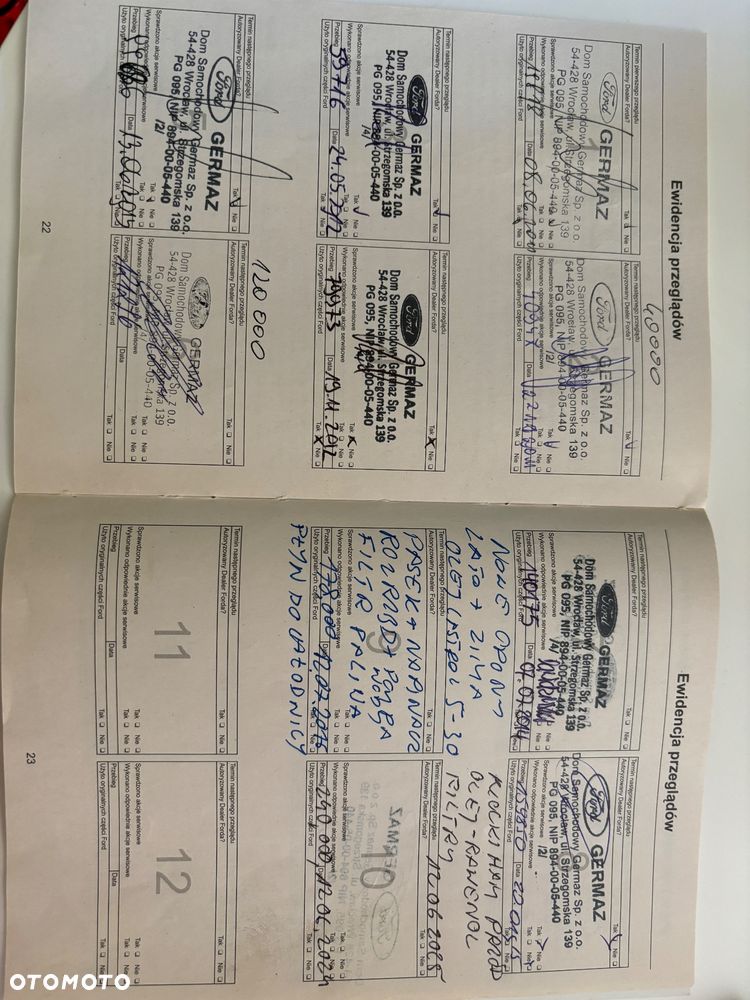 Ewidencja przeglądów
40000
Termin pierwszego przeglądu
Autoryzowany Dealer Forda? Tak Nie
Ford GERMAZ
Dom Samochodowy Germaz Sp. z o.o.
54-428 Wrocław, ul. Strzegomska 139
PG 095, NIP 894-00-05-440
Sprawdzono akcje serwisowe Tak Nie
Wykonano odpowiednie akcje serwisowe Tak Nie
Przebieg Data
Użyto oryginalnych części Ford Tak Nie
Termin następnego przeglądu
Autoryzowany Dealer Forda? Tak Nie
Ford GERMAZ
Dom Samochodowy Germaz Sp. z o.o.
54-428 Wrocław, ul. Strzegomska 139
PG 095, NIP 894-00-05-440
/2/
Sprawdzono akcje serwisowe Tak Nie
Wykonano odpowiednie akcje serwisowe Tak Nie
Przebieg Data
Użyto oryginalnych części Ford Tak Nie
Termin następnego przeglądu
Autoryzowany Dealer Forda? Tak Nie
Ford GERMAZ
Dom Samochodowy Germaz Sp. z o.o.
54-428 Wrocław, ul. Strzegomska 139
PG 095, NIP 894-00-05-440
/4/
Sprawdzono akcje serwisowe Tak Nie
Wykonano odpowiednie akcje serwisowe Tak Nie
Przebieg 59776 Data 24.05.2012
Użyto oryginalnych części Ford Tak Nie
Termin następnego przeglądu
Autoryzowany Dealer Forda? Tak Nie
Ford GERMAZ
Dom Samochodowy Germaz Sp. z o.o.
54-428 Wrocław, ul. Strzegomska 139
PG 095, NIP 894-00-05-440
Sprawdzono akcje serwisowe Tak Nie
Wykonano odpowiednie akcje serwisowe Tak Nie
Przebieg 79973 Data 19.11.2012
Użyto oryginalnych części Ford Tak Nie
Termin następnego przeglądu
Autoryzowany Dealer Forda? Tak Nie
Ford GERMAZ
Dom Samochodowy Germaz Sp. z o.o.
54-428 Wrocław, ul. Strzegomska 139
PG 095, NIP 894-00-05-440
/2/
Sprawdzono akcje serwisowe Tak Nie
Wykonano odpowiednie akcje serwisowe Tak Nie
Przebieg Data
Użyto oryginalnych części Ford Tak Nie
120 000
Termin następnego przeglądu
Autoryzowany Dealer Forda? Tak Nie
Ford GERMAZ
Dom Samochodowy Germaz Sp. z o.o.
54-428 Wrocław, ul. Strzegomska 139
PG 095, NIP 894-00-05-440
/4/
Sprawdzono akcje serwisowe Tak Nie
Wykonano odpowiednie akcje serwisowe Tak Nie
Przebieg Data
Użyto oryginalnych części Ford Tak Nie
22
Ewidencja przeglądów
Termin następnego przeglądu
Autoryzowany Dealer Forda? Tak Nie
Ford GERMAZ
Dom Samochodowy Germaz Sp. z o.o.
54-428 Wrocław, ul. Strzegomska 139
PG 095, NIP 894-00-05-440
/4/
Sprawdzono akcje serwisowe Tak Nie
Wykonano odpowiednie akcje serwisowe Tak Nie
Przebieg 140175 Data 07.07.2014
Użyto oryginalnych części Ford Tak Nie
Termin następnego przeglądu
Autoryzowany Dealer Forda? Tak Nie
Ford GERMAZ
Dom Samochodowy Germaz Sp. z o.o.
54-428 Wrocław, ul. Strzegomska 139
PG 095, NIP 894-00-05-440
/2/
Sprawdzono akcje serwisowe Tak Nie
Wykonano odpowiednie akcje serwisowe Tak Nie
Przebieg Data
Użyto oryginalnych części Ford Tak Nie
NOWE OPONY
LATO + ZIMA
OLEJ CASTROL 5-30
Termin następnego przeglądu
Autoryzowany Dealer Forda? Tak Nie
PASEK + NAPINACZ
ROZRZĄD + POMPA WODY
FILTR PALIWA
9
Sprawdzono akcje serwisowe Tak Nie
Wykonano odpowiednie akcje serwisowe Tak Nie
Przebieg 178000 Data
Użyto oryginalnych części Ford Tak Nie
PŁYN DO CHŁODNICY
KLOCKI HAM PRZÓD
OLEJ-RAVENOL
FILTRY
Termin następnego przeglądu 10.06.2025
Autoryzowany Dealer Forda? Tak Nie
10
Sprawdzono akcje serwisowe Tak Nie
Wykonano odpowiednie akcje serwisowe Tak Nie
Przebieg 240 000 Data 12.06.2024
Użyto oryginalnych części Ford Tak Nie
Termin następnego przeglądu
Autoryzowany Dealer Forda? Tak Nie
11
Sprawdzono akcje serwisowe Tak Nie
Wykonano odpowiednie akcje serwisowe Tak Nie
Przebieg Data
Użyto oryginalnych części Ford Tak Nie
Termin następnego przeglądu
Autoryzowany Dealer Forda? Tak Nie
12
Sprawdzono akcje serwisowe Tak Nie
Wykonano odpowiednie akcje serwisowe Tak Nie
Przebieg Data
Użyto oryginalnych części Ford Tak Nie
23
OTOMOTO